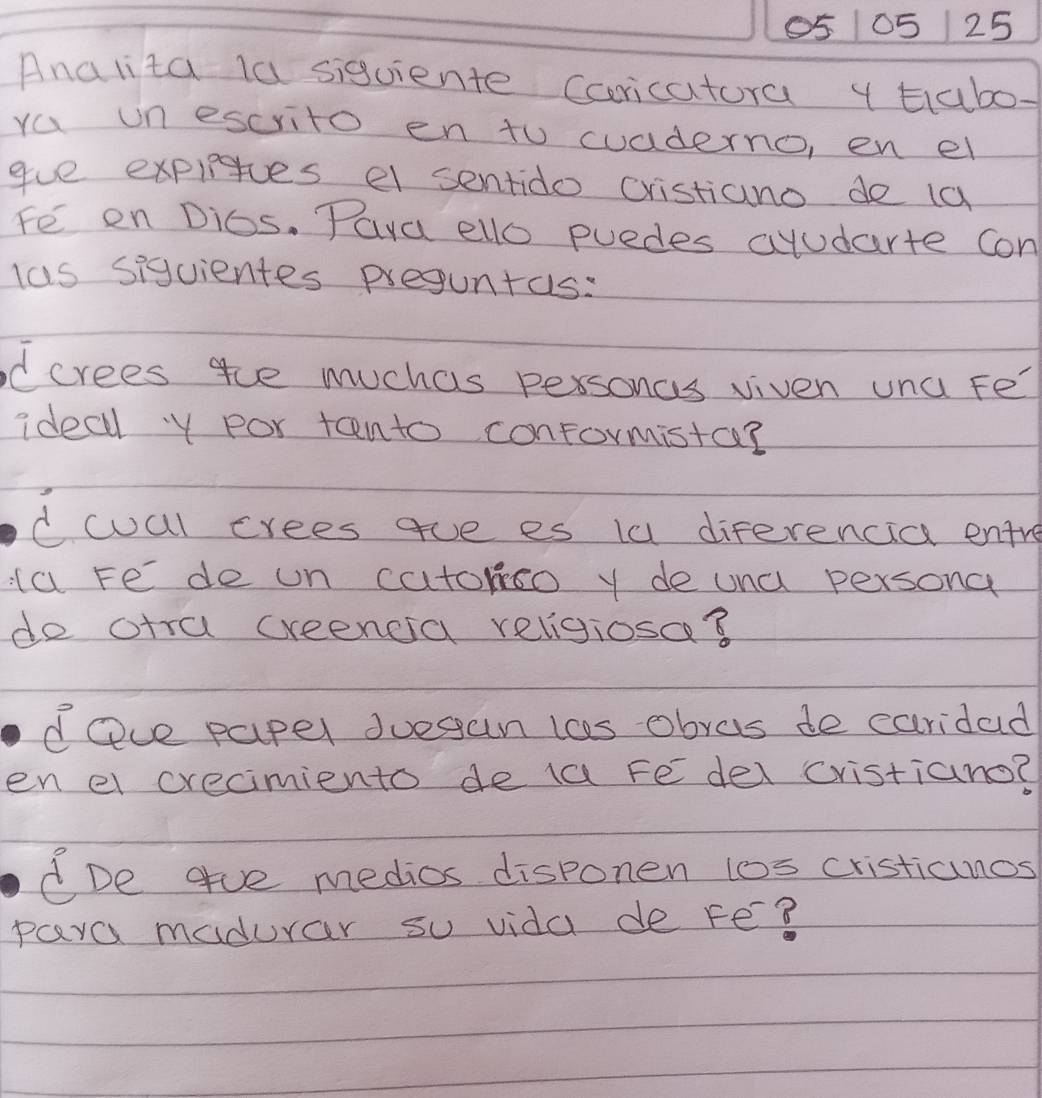 05 | 05 | 25
Analiza la siguiente caricatura y elabo-
ra un escrito en tu cuaderno, en el
que expliques el sentido cristiano de la
Fé en Dios. Para ello puedes ayudarte con
las siguientes preguntas:
• ¿crees que muchas personas viven una Fé
ideal y por tanto conformista?
• ¿cual crees que es la diferencia entre
la Fé de un catolico y de una persona
de otra creencia religiosa?
• ¿Que papel Juegan las obras de caridad
en el crecimiento de la Fé del cristiano?
• ¿De que medios disponen los cristianos
para madurar su vida de Fé?